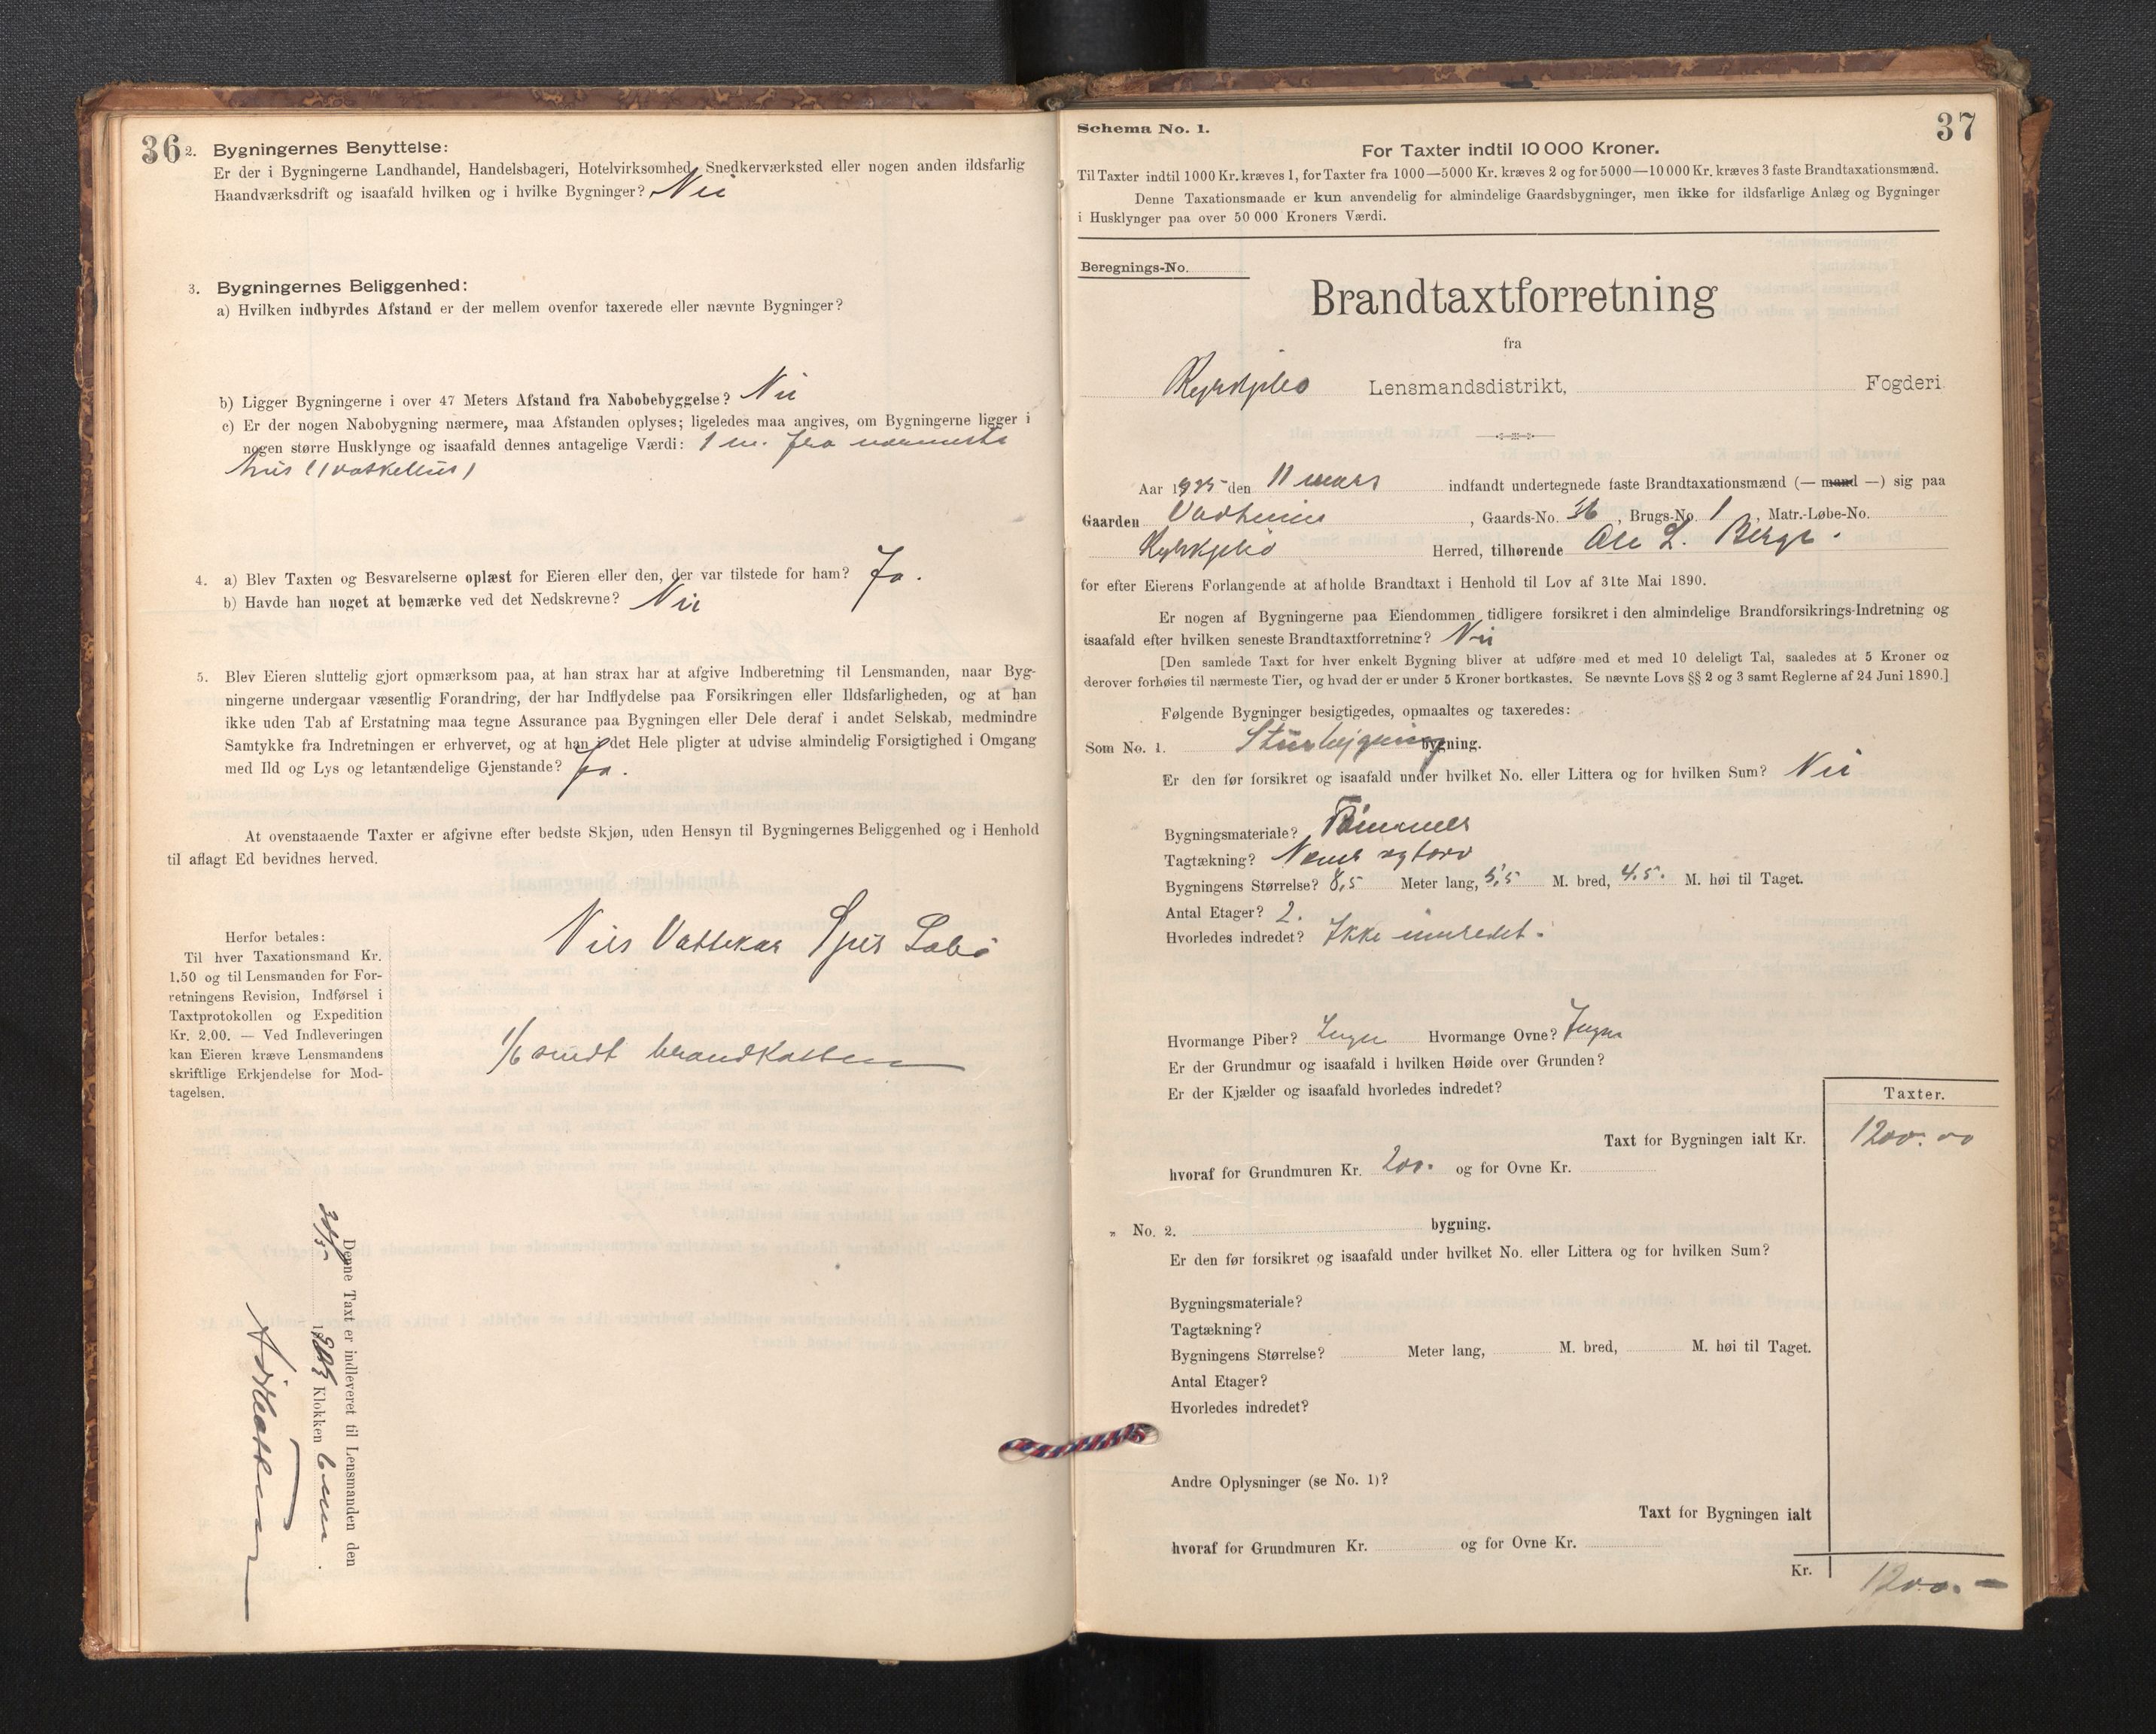 36
2. Bygningernes Benyttelse:
Er der i Bygningerne Landhandel, Handelsbageri, Hotelvirksomhed, Snedkerværksted eller nogen anden ildsfarlig
Haandværksdrift og isaafald hvilken og i hvilke Bygninger? Nei
3. Bygningernes Beliggenhed:
a) Hvilken indbyrdes Afstand er der mellem ovenfor taxerede eller nævnte Bygninger?
b) Ligger Bygningerne i over 47 Meters Afstand fra Nabobebyggelse? Nei
c) Er der nogen Nabobygning nærmere, maa Afstanden oplyses; ligeledes maa angives, om Bygningerne ligger i
nogen større Husklynge og isaafald dennes antagelige Værdi: 1 m. fra nærmeste
hus (Vaskehus)
4. a) Blev Taxten og Besvarelserne oplæst for Eieren eller den, der var tilstede for ham? Ja.
b) Havde han noget at bemærke ved det Nedskrevne? Nei
5. Blev Eieren sluttelig gjort opmærksom paa, at han strax har at afgive Indberetning til Lensmanden, naar Byg-
ningerne undergaar væsentlig Forandring, der har Indflydelse paa Forsikringen eller Ildsfarligheden, og at han
ikke uden Tab af Erstatning maa tegne Assurance paa Bygningen eller Dele deraf i andet Selskab, medmindre
Samtykke fra Indretningen er erhvervet, og at han i det Hele pligter at udvise almindelig Forsigtighed i Omgang
med Ild og Lys og letantændelige Gjenstande? Ja.
At ovenstaaende Taxter er afgivne efter bedste Skjøn, uden Hensyn til Bygningernes Beliggenhed og i Henhold
til aflagt Ed bevidnes herved.
Nils Vattekar
Herfor betales:
Til hver Taxationsmand Kr.
1.50 og til Lensmanden for For-
retningens Revision, Indførsel i
Taxtprotokollen og Expedition
Kr. 2.00. — Ved Indleveringen
kan Eieren kræve Lensmandens
skriftlige Erkjendelse for Mod-
tagelsen.
1/6 sendt brandkassen
Denne Taxt er indleveret til Lensmanden den
Klokken
37
Schema No. 1.
For Taxter indtil 10 000 Kroner.
Til Taxter indtil 1000 Kr. kræves 1, for Taxter fra 1000—5000 Kr. kræves 2 og for 5000—10 000 Kr. kræves 3 faste Brandtaxationsmænd.
Denne Taxationsmaade er kun anvendelig for almindelige Gaardsbygninger, men ikke for ildsfarlige Anlæg og Bygninger
i Husklynger paa over 50 000 Kroners Værdi.
Beregnings-No.
Brandtaxtforretning
fra
Kyrkjebø Lensmandsdistrikt, Fogderi
Aar 1925 den 11 mars indfandt undertegnede faste Brandtaxationsmænd (— mand —) sig paa
Gaarden Vadheim, Gaards-No. 36, Brugs-No. 1, Matr.-Løbe-No.
Kyrkjebø Herred, tilhørende Ole L. Berge.
for efter Eierens Forlangende at afholde Brandtaxt i Henhold til Lov af 31te Mai 1890.
Er nogen af Bygningerne paa Eiendommen tidligere forsikret i den almindelige Brandforsikrings-Indretning og
isaafald efter hvilken seneste Brandtaxtforretning? Nei
[Den samlede Taxt for hver enkelt Bygning bliver at udføre med et med 10 deleligt Tal, saaledes at 5 Kroner og
derover forhøies til nærmeste Tier, og hvad der er under 5 Kroner bortkastes. Se nævnte Lovs §§ 2 og 3 samt Reglerne af 24 Juni 1890.]
Følgende Bygninger besigtigedes, opmaaltes og taxeredes:
Som No. 1. bygning.
Er den før forsikret og isaafald under hvilket No. eller Littera og for hvilken Sum? Nei
Bygningsmateriale? Tømmer
Tagtækning? Næver og torv
Bygningens Størrelse? 8,5 Meter lang, 5,5 M. bred, 4.5. M. høi til Taget.
Antal Etager? 2.
Hvorledes indredet? Ikke innredet.
Hvormange Piber? Ingen Hvormange Ovne? Ingen
Er der Grundmur og isaafald i hvilken Høide over Grunden?
Er der Kjælder og isaafald hvorledes indredet?
Taxter.
Taxt for Bygningen ialt Kr. 1200.00
hvoraf for Grundmuren Kr. 200. og for Ovne Kr.
„ No. 2. bygning.
Er den før forsikret og isaafald under hvilket No. eller Littera og for hvilken Sum?
Bygningsmateriale?
Tagtækning?
Bygningens Størrelse? Meter lang, M. bred, M. høi til Taget.
Antal Etager?
Hvorledes indredet?
Andre Oplysninger (se No. 1)?
Taxt for Bygningen ialt
hvoraf for Grundmuren Kr. og for Ovne Kr.
Kr. 1200.-